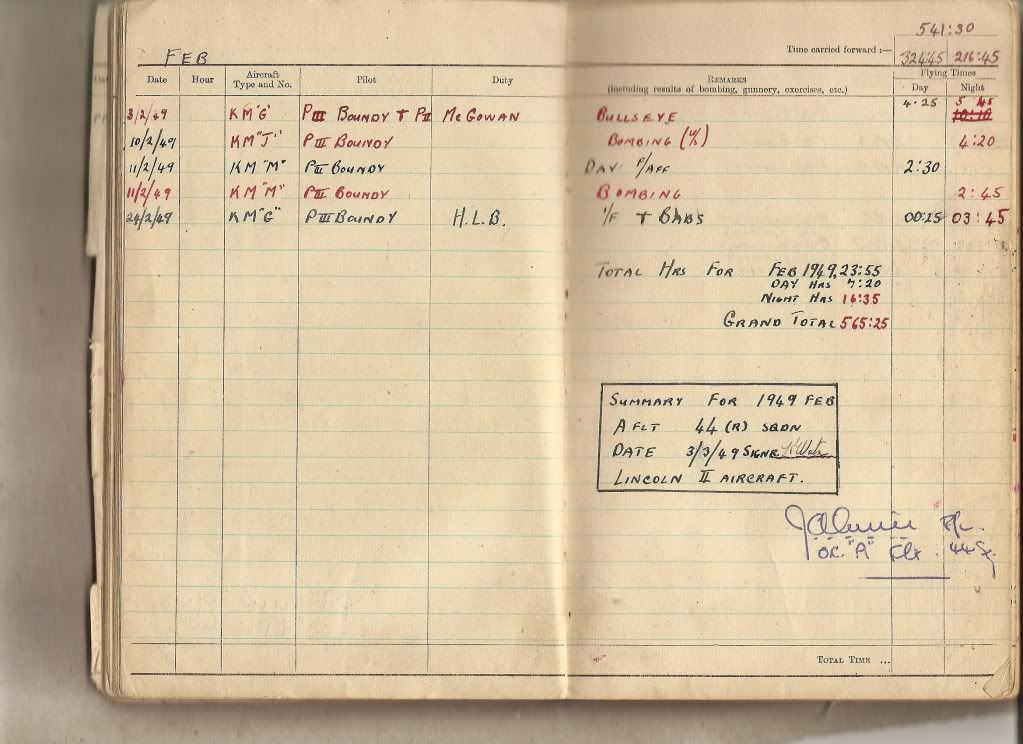 541:30
FEB Time carried forward:— 324:45 216:45
Date Hour Aircraft Type and No. Pilot Duty REMARKS (including results of bombing, gunnery, exercises, etc.) Flying Times Day Night
3/2/49 KM"G" PIII BOUNDY + PII McGOWAN BULLSEYE 4.25 5 45
10/2/49 KM"J" PIII BOUNDY BOMBING (U/S) 4:20
11/2/49 KM "M" PIII BOUNDY DAY F/AFF 2:30
11/2/49 KM "M" PIII BOUNDY BOMBING 2:45
24/2/49 KM"G" PIII BOUNDY H.L.B. I/F + BABS 00:25 03:45
TOTAL HRS FOR FEB 1949, 23:55
DAY HRS 7:20
NIGHT HRS 16:35
GRAND TOTAL 565:25
SUMMARY FOR 1949 FEB
A FLT 44 (R) SQDN
DATE 3/3/49 SIGNR
LINCOLN II AIRCRAFT.
F/L.
OC. "A" Flt. 44 Sq.
TOTAL TIME ...